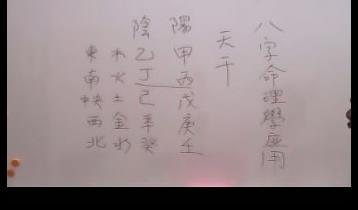 八字命理學應用
天干
陽 甲 丙 戊 庚 壬
陰 乙 丁 己 辛 癸
木 火 土 金 水
東 南 央 西 北